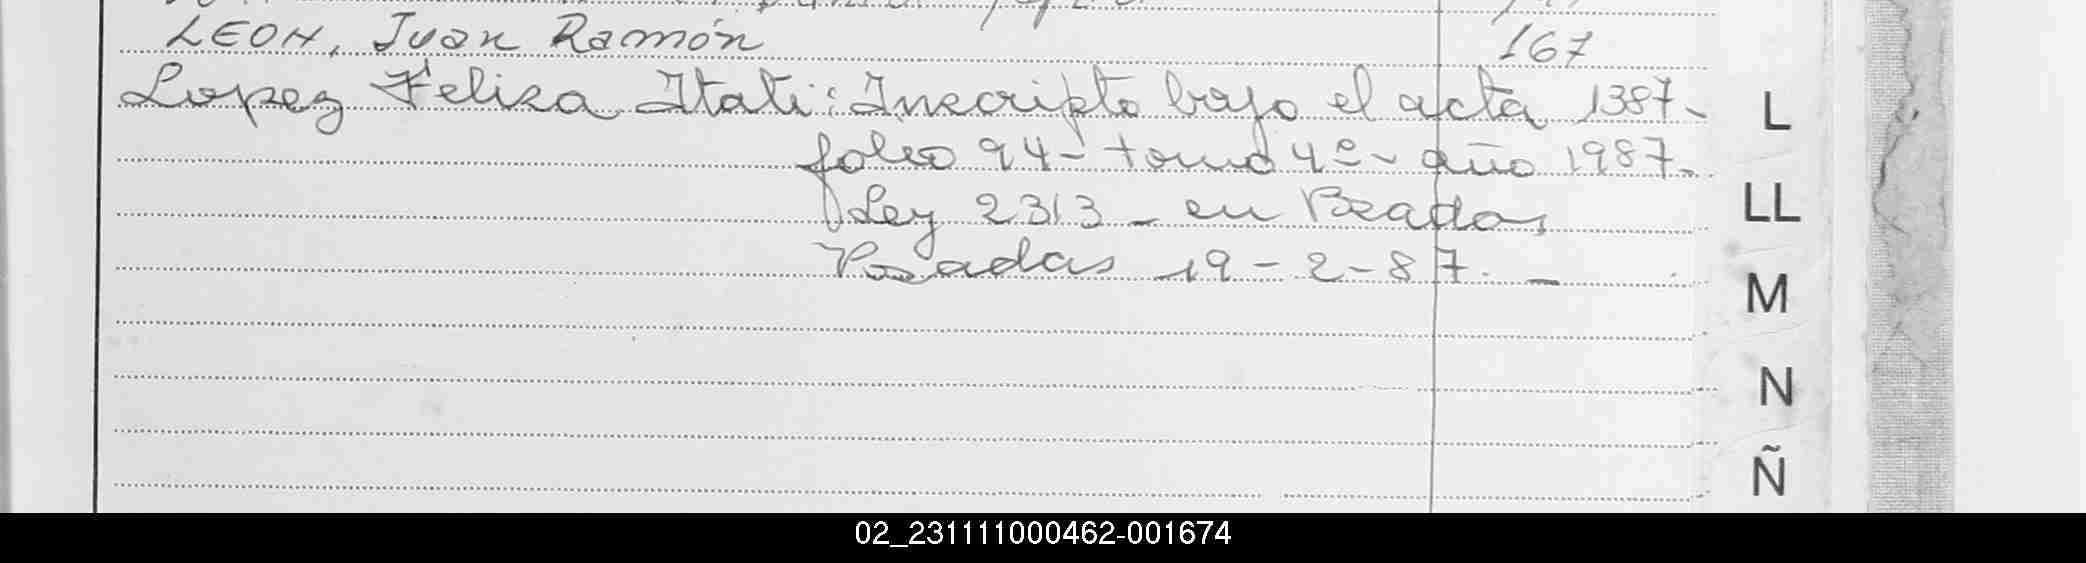 LEON, Juan Ramón 167
Lopez Felisa Itati: Inscripto bajo el acta 1387-
folio 94- tomo 4º- año 1987-
Ley 2313 - en
Posadas 19-2-87. -
L
LL
M
N
Ñ
02_231111000462-001674